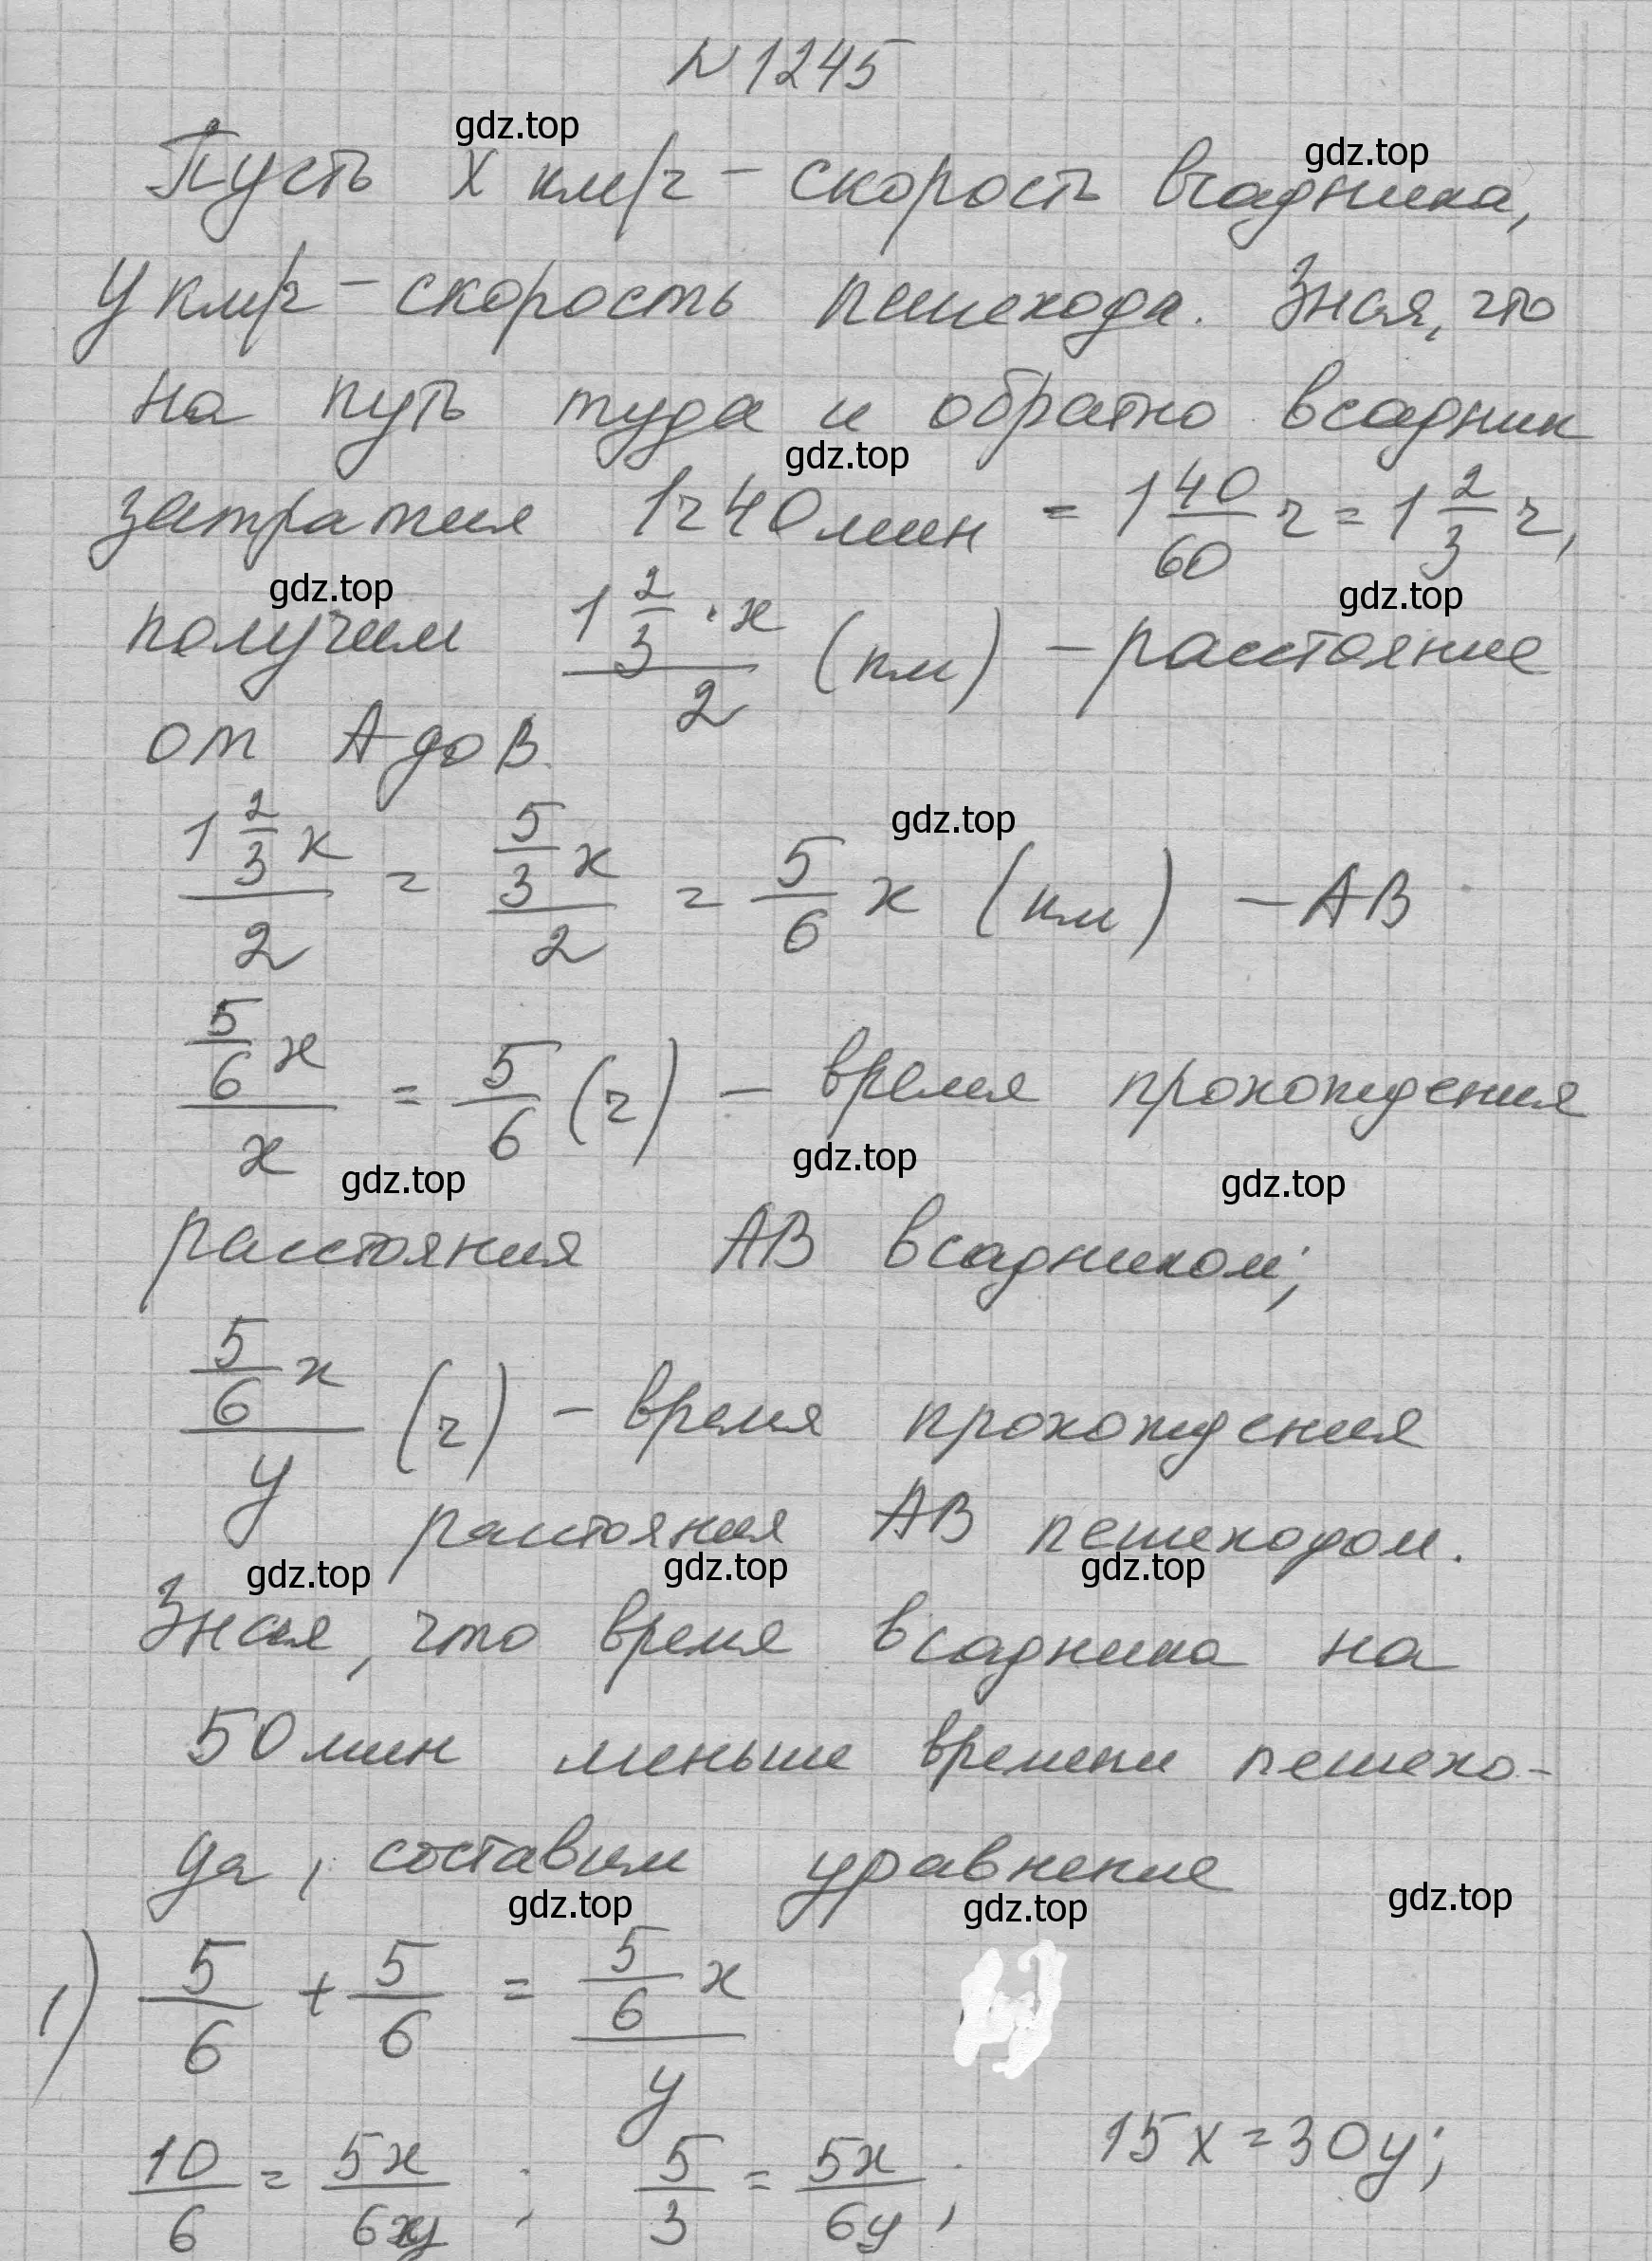 N 1245
gdz.top
gdz.top
Пусть x км/ч – скорость всадника,
y км/ч – скорость пешехода. Зная, что
на путь туда и обратно всадник
gdz.top
затратил 1ч 40 мин = 1 40/60 ч = 1 2/3 ч,
gdz.top gdz.top
получим (1 2/3 · x)/2 (км) – расстояние
от A до B.
gdz.top
(1 2/3 x)/2 = (5/3 x)/2 = 5/6 x (км) – AB
(5/6 x)/x = 5/6 (ч) – время прохождения
gdz.top gdz.top gdz.top
расстояния AB всадником;
(5/6 x)/y (ч) – время прохождения
расстояния AB пешеходом.
gdz.top gdz.top gdz.top
Зная, что время всадника на
50 мин меньше времени пешехо-
да, составим уравнение
gdz.top gdz.top gdz.top
1) 5/6 + 5/6 = (5/6 x)/y
10/6 = 5x/6y ; 5/3 = 5x/6y ; 15x = 30y;